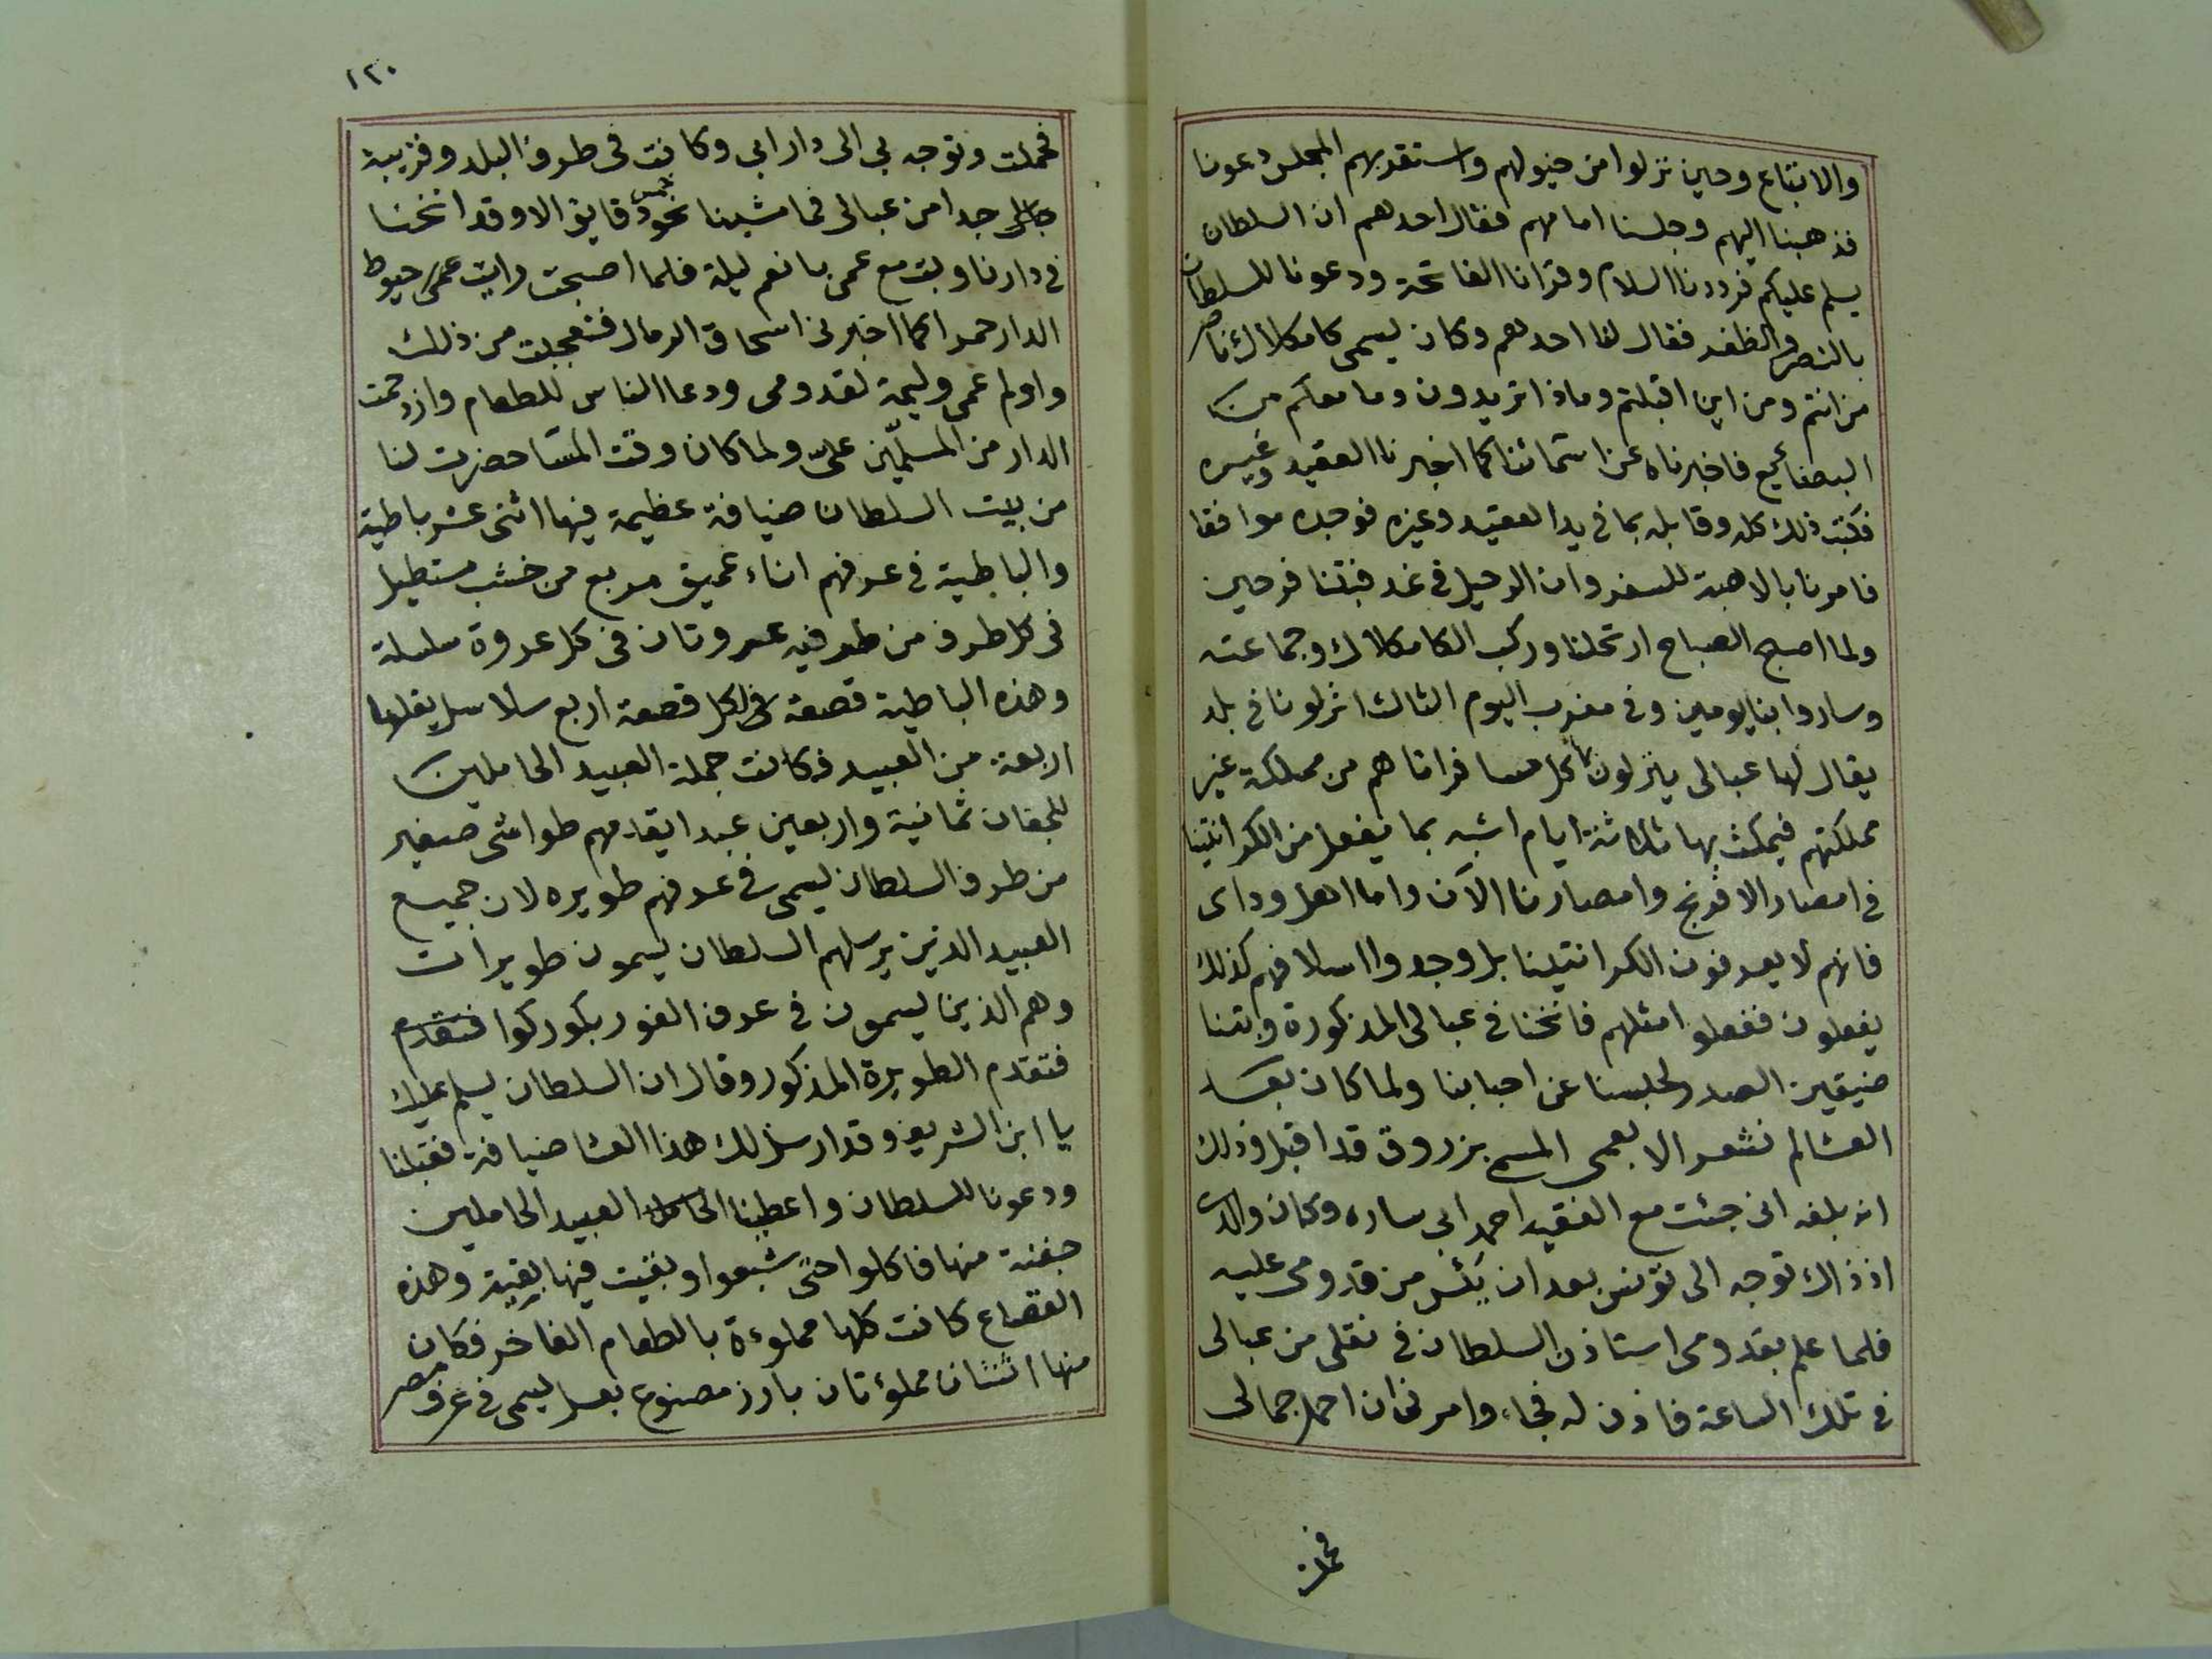 والاتباع وحين نزلوا من خيولهم واستقر بهم المجلس دعونا
فذهبنا اليهم وجلسنا امامهم فقال احدهم ان السلطان
يسلم عليكم فرددنا السلام وقرانا الفاتحة ودعونا للسلطان
بالنصر والظفر فقال لنا احدهم وكان يسمى كامكلاك ناصر
من انتم ومن اين اقبلتم وماذا تريدون وما معكم من
البضائع فاخبرناه عن اسمائنا كما اخبرنا العقيد وغيره
فكتب ذلك كله وقابله بما في يد العقيد وغيره فوجده موافقا
فامرنا بالاهبة للسفر وان الرحيل في غد فبتنا فرحين
ولما اصبح الصباح ارتحلنا وركب الكامكلاك وجماعته
وساروا بنا يومين وفي مغرب اليوم الثالث انزلونا في بلد
يقال لها عبالى ينزلون بها كل مسافر اتاهم من مملكة غير
مملكتهم فيمكث بها ثلاثة ايام اشبه بما يفعل من الكرانتينا
في امصار الافرنج وامصارنا الآن واما اهل وداى
فانهم لا يعرفون الكرانتينا بل وجدوا اسلافهم كذلك
يفعلون ففعلوا مثلهم فانخنا في عبالى المذكورة وبتنا
ضيقين الصدر لحبسنا عن احبابنا ولما كان بعد
العشا لم نشعر الا بعمى المسمى بزروق قد اقبل وذلك
انه بلغه انى جئت مع الفقيد احمد ابى ساره وكان والدى
اذ ذاك توجه الى تونس بعد ان يئس من قدومى عليه
فلما علم بقدومى استاذن السلطان في نقلى من عبالى
في تلك الساعة فاذن له فجاء وامرنى ان احمل جمالى
فحملت
١٢٠
فحملت وتوجه بى الى دار ابى وكانت فى طرف البلد وقريبة
جدا من عبالى فما مشينا نحو خمس دقايق الا وقد انخنا
في دارنا وبت مع عمى بانعم ليلة فلما اصبحت رايت عمى حيوط
الدار حمرا كما اخبرنى اسحاق الرمال فتعجبت من ذلك
واولم عمى وليمة لقدومى ودعا الناس للطعام وازدحمت
الدار من المسلمين علىّ ولما كان وقت العشا حضرت لنا
من بيت السلطان ضيافة عظيمة فيها اثنى عشر باطية
والباطية في عرفهم اناء عميق مربع من خشب مستطيل
فى كل طرف من طرفيه عروتان فى كل عروة سلسلة
وهذه الباطية قصعة فى كل قصعة اربع سلاسل يقلها
اربعة من العبيد فكانت جملة العبيد الحاملين
للجفان ثمانية واربعين عبدا يقدمهم طواشى صغير
من طرف السلطان يسمى في عرفهم طويره لان جميع
العبيد الذين يرسلهم السلطان يسمون طويرات
وهم الذين يسمون في عرف الفور بكوركوا فتقدم
فتقدم الطويرة المذكور وقال ان السلطان يسلم عليك
يا ابن الشريف وقد ارسل لك هذا العشا ضيافة فقبلنا
ودعونا للسلطان واعطينا العبيد الحاملين
جفنة منها فاكلوا حتى شبعوا وبقيت فيها بقية وهذه
القصاع كانت كلها مملوءة بالطعام الفاخر فكان
منها اثنتان مملؤتان بارز مصنوع بعسل يسمى في عرف مصر